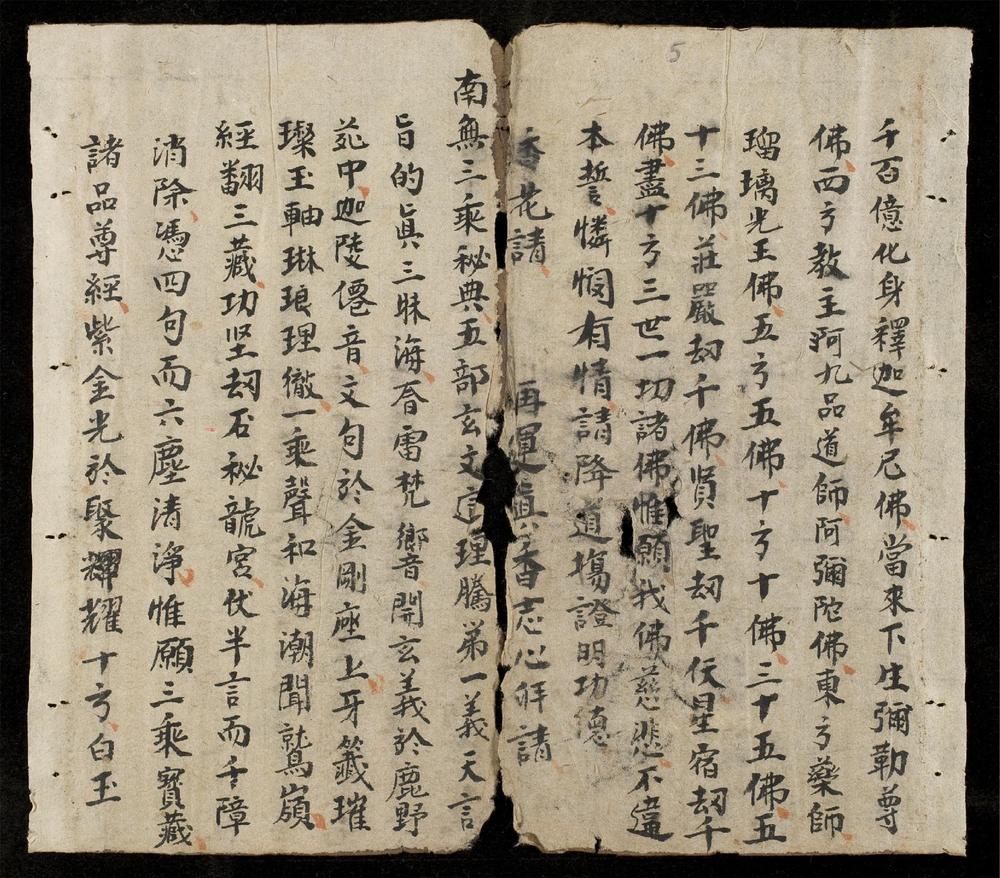 5
千百億化身釋迦牟尼佛當來下生彌勒尊
佛西方教主阿九品道師阿彌陀佛東方藥師
瑠璃光王佛五方五佛十方十佛三十五佛五
十三佛莊嚴刼千佛賢聖刼千仸星宿刼千
佛盡十方三世一切諸佛惟願我佛慈悲不違
本誓憐憫有情請降道塲證明功德
香花請 再運真香志心拜請
南無三乘秘典五部玄文宣理騰第一義天言
旨的真三昧海唇雷梵響音開玄義於鹿野
苑中迦陵僊音文句於金剛座上牙籤璀
璨玉軸琳琅理徹一乘聲和海潮聞鷲嶺
經翻三藏功坚刼石秘龍宮仗半言而千障
消除憑四句而六塵清淨惟願三乘寳藏
諸品尊經紫金光於聚輝耀十方白玉